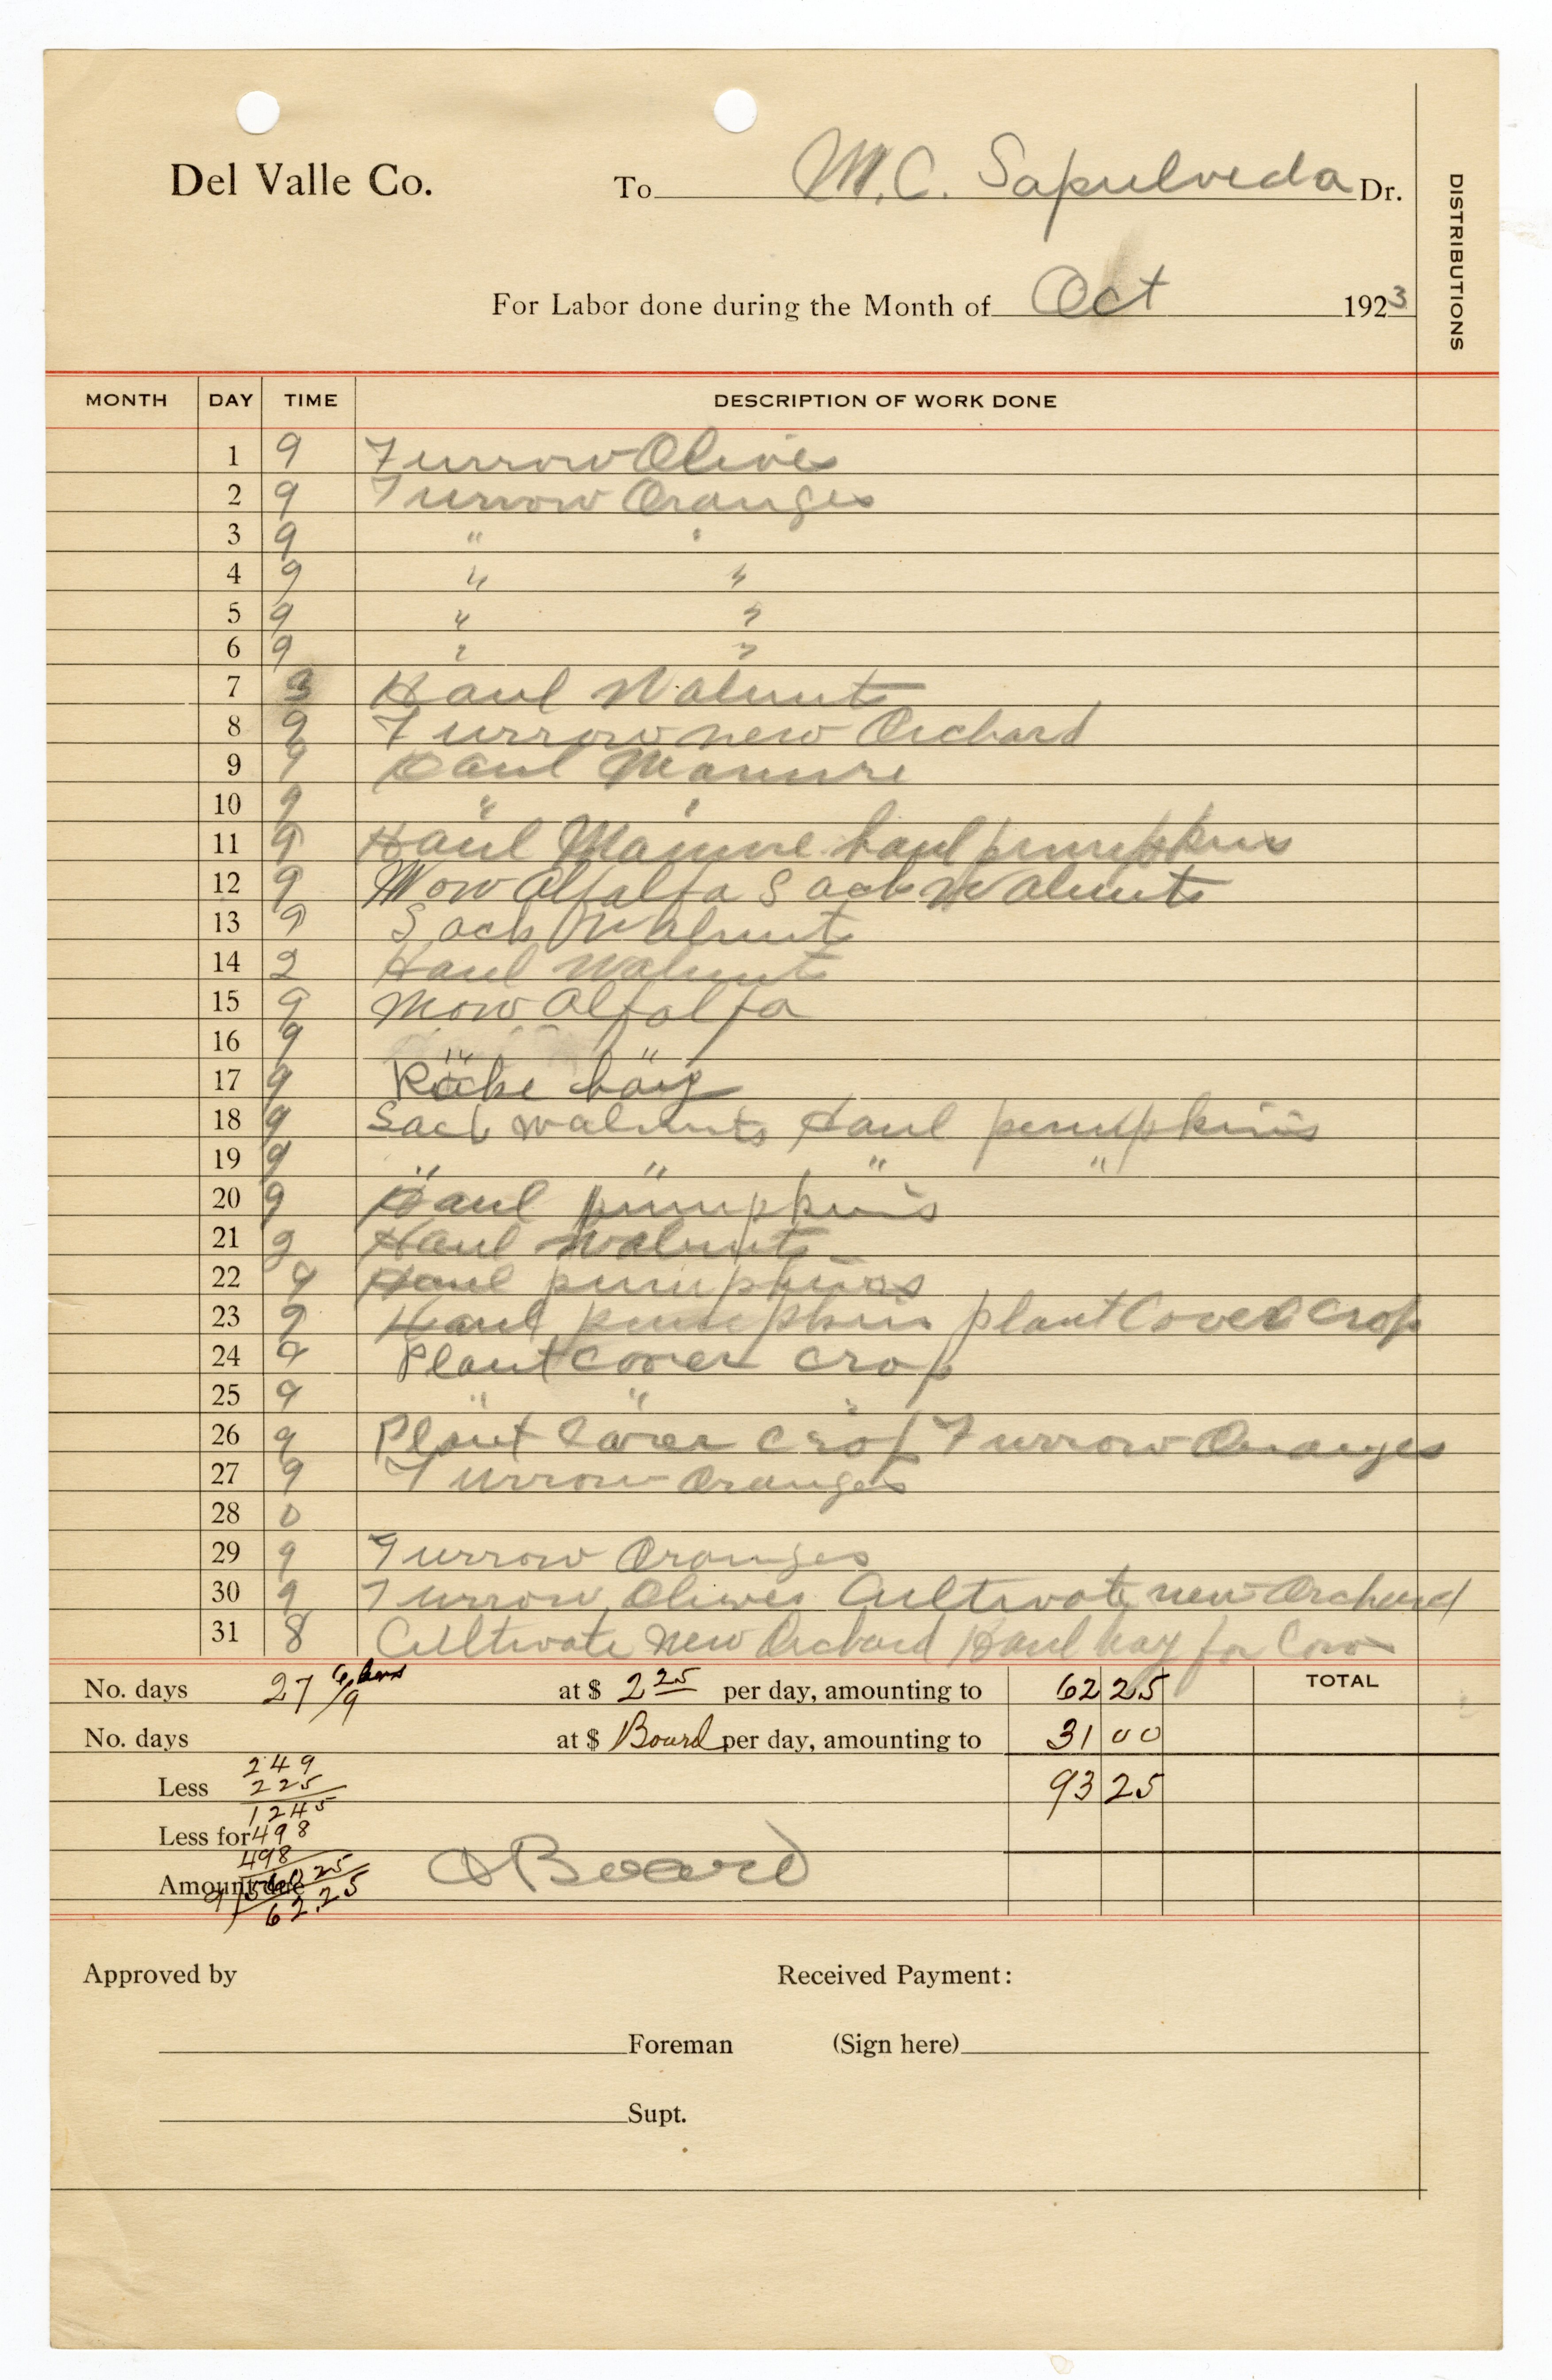 Del Valle Co. To M.C. Sapulveda Dr.
DISTRIBUTIONS
For Labor done during the Month of Oct 1923
MONTH DAY TIME DESCRIPTION OF WORK DONE
1 9 Furrow Olives
2 9 Furrow Oranges
3 9 " "
4 9 " "
5 9 " "
6 9 " "
7 3 Haul Walnuts
8 9 Furrow new Orchard
9 9 Haul Manure
10 9 " "
11 9 Haul Manure haul pumpkins
12 9 Mow Alfalfa Sack Walnuts
13 9 Sack Walnuts
14 2 Haul Walnuts
15 9 Mow Alfalfa
16 9 " "
17 9 Rake hay
18 9 Sack walnuts Haul pumpkins
19 9 " " " "
20 9 Haul pumpkins
21 2 Haul Walnuts
22 9 Haul pumpkins
23 9 Haul pumpkin plant Cover Crop
24 9 Plant cover crop
25 9 " " "
26 9 Plant Cover Crop Furrow Oranges
27 9 Furrow Oranges
28 0
29 9 Furrow Oranges
30 9 Furrow Olives Cultivate new Orchard
31 8 Cultivate New Orchard Haul hay for Cow
No. days 27 6/9 hours at $ 2 25 per day, amounting to 62 25 TOTAL
No. days at $ Board per day, amounting to 31 00
249
Less 225 93 25
1245
Less for 498
498
Amount due 9 560 25 & Board
62.25
Approved by Received Payment:
Foreman (Sign here)
Supt.